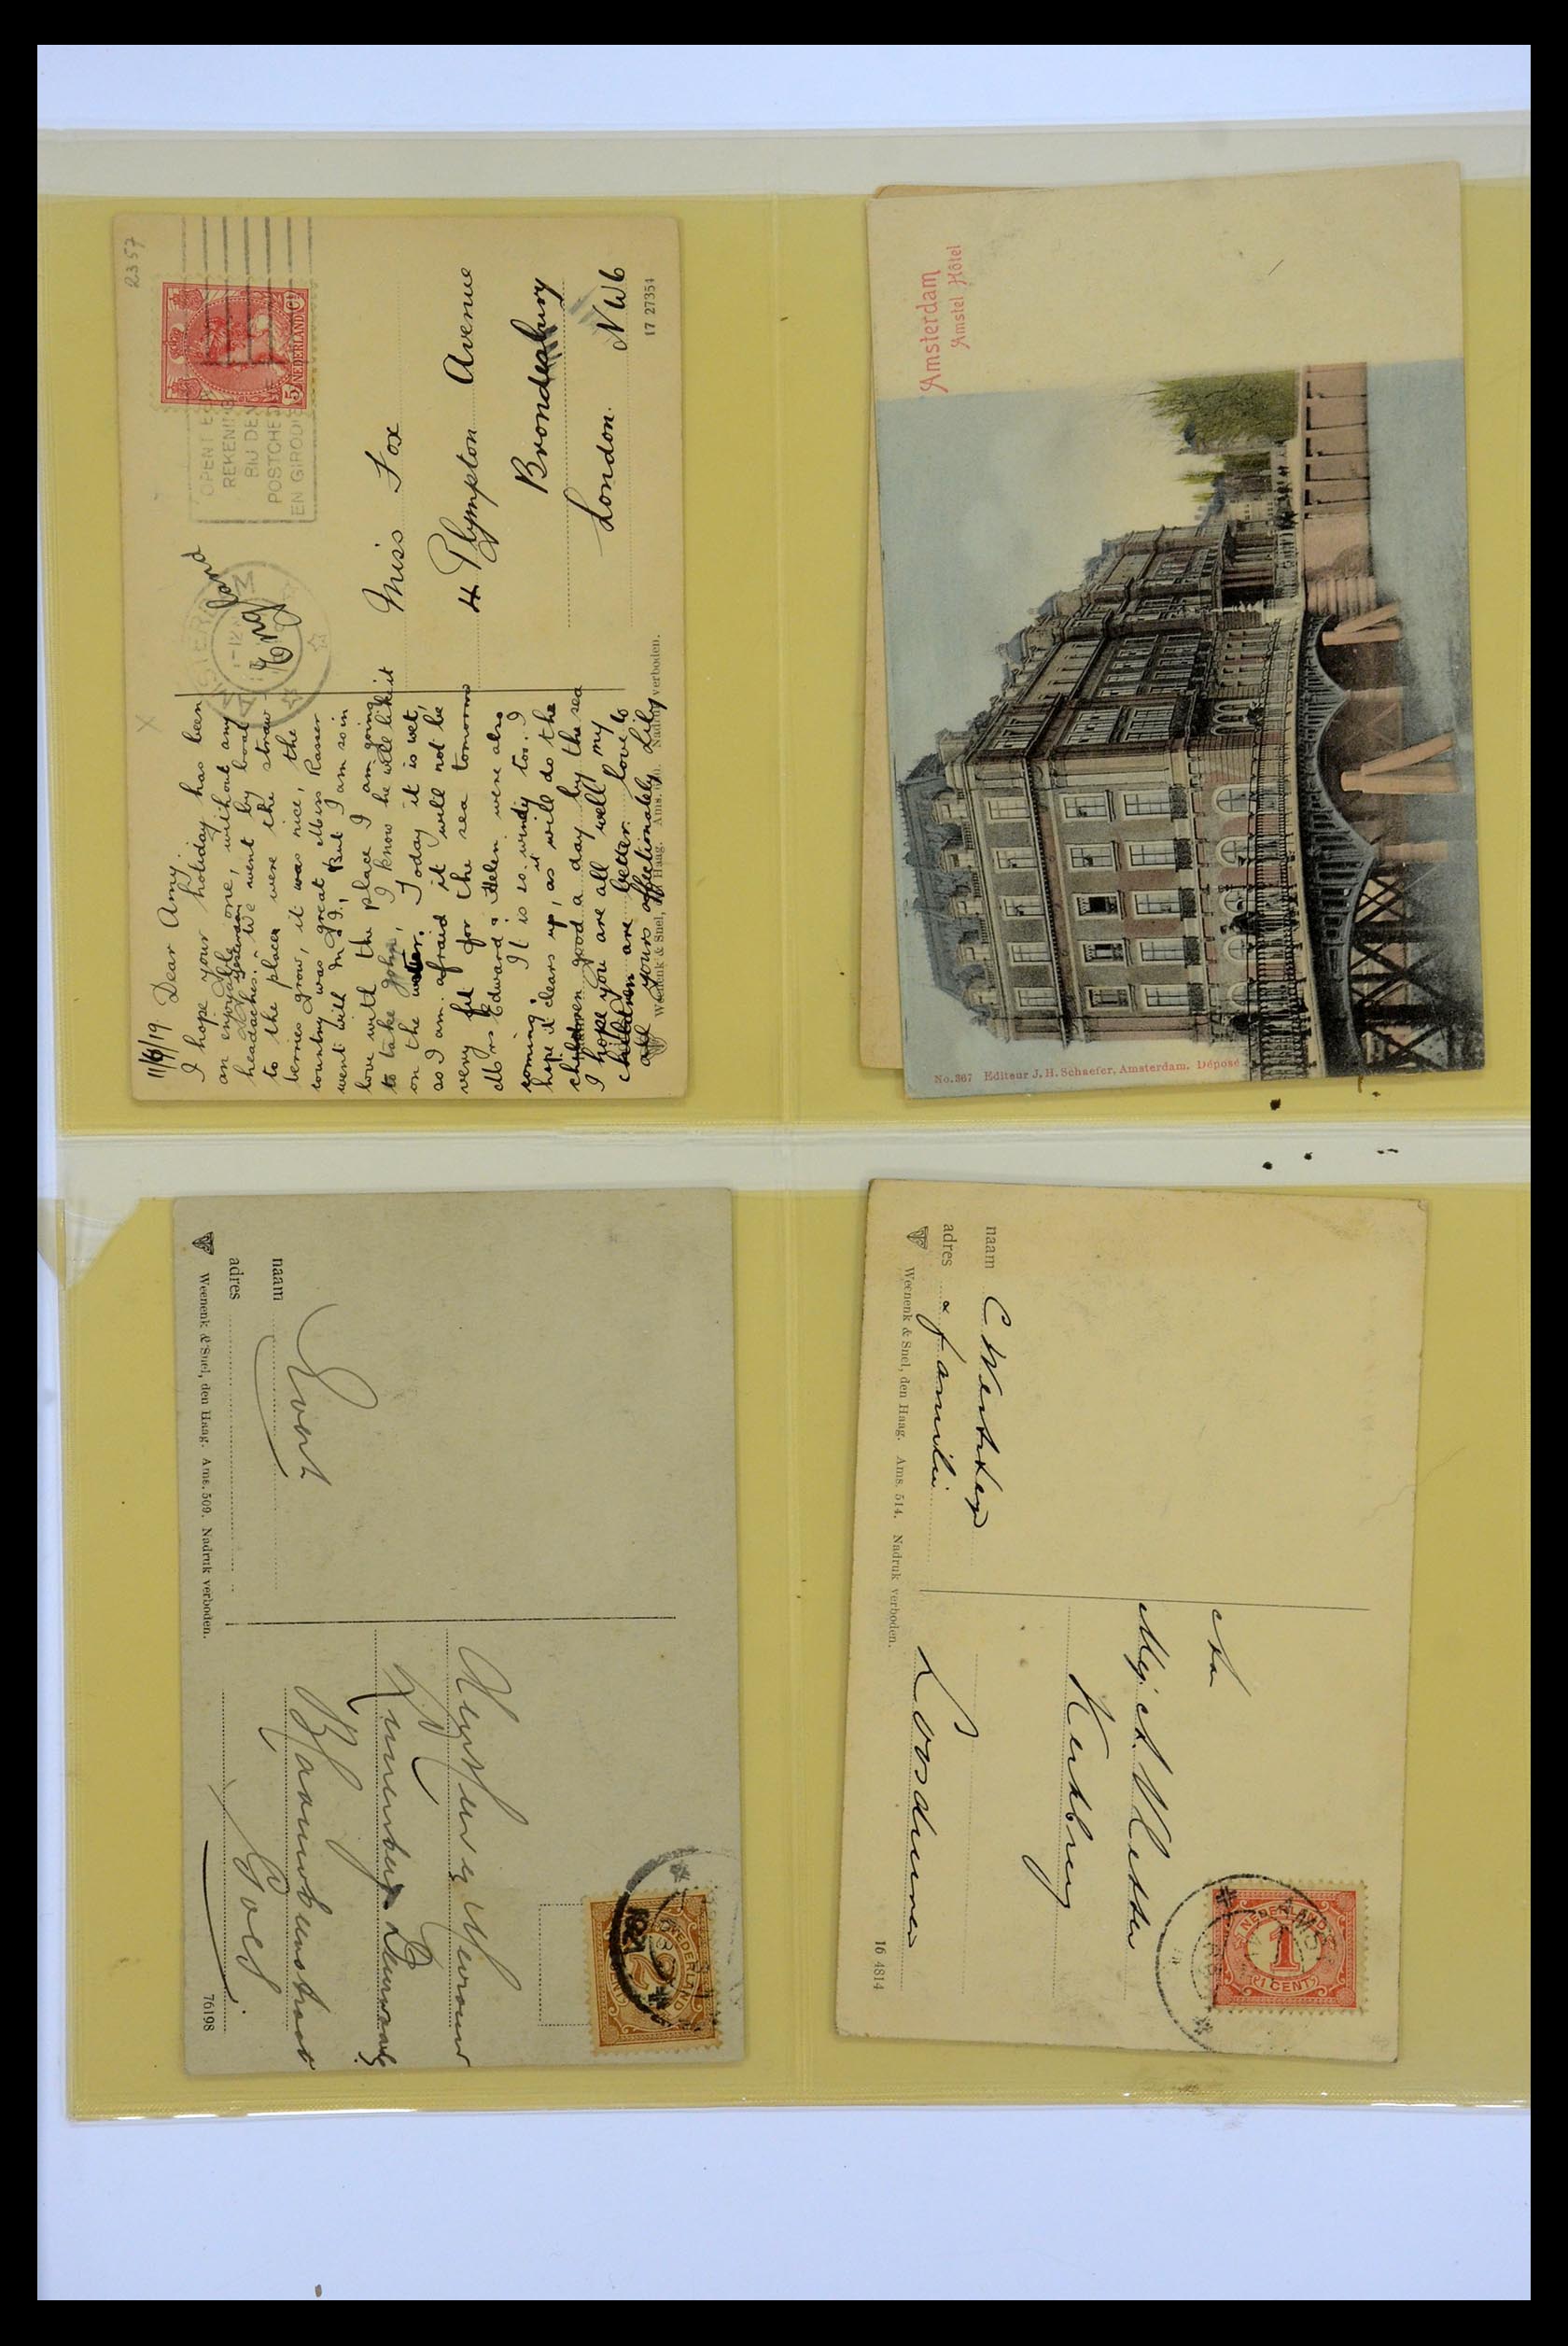 2357
OPENT EEN
REKENING
BIJ DEN
POSTCHEQUE
EN GIRODIENST
5 NEDERLAND 5
England
11/6/19. Dear Amy.
I hope your holiday has been
an enjoyable one, without any
headaches. We went by boat
to the places were the straw
berries grow, it was nice, the
country was great. Miss Rasser
went with M & I, But I am so in
love with the place I am going
to take John, I know he will like it
on the water. Today it is wet,
so I am afraid it will not be
very fit for the sea tomorrow
Edward & Helen were also
coming. It is so windy too. I
hope it clears up, as it will do the
children good a day by the sea
I hope you are all well, my
children are better. love to
all yours affectionately Lily
Miss Fox
4 Plympton Avenue
Brondesbury
London. NW6
Weenenk & Snel, den Haag. Ams. Nadruk verboden.
17 27354
Amsterdam
Amstel Hôtel
No. 367 Editeur J. H. Schaefer, Amsterdam. Déposé.
naam
adres
Weenenk & Snel, den Haag. Ams. 509. Nadruk verboden.
Evort
Goes
76198
NEDERLAND
1921
naam
adres & familie
Weenenk & Snel, den Haag. Ams. 514. Nadruk verboden.
Kerkbrug
Loosduinen
16 4814
NEDERLAND
1
1 CENT